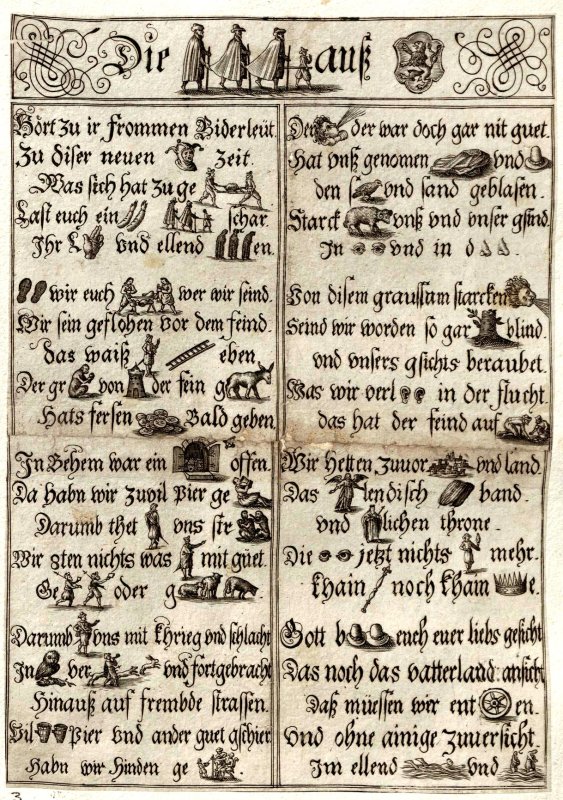 Die auß
Hört zu ir frommen Biderleüt.
Zu diser neuen zeit.
Was sich hat zu ge
Last euch ein schar
Ihr L und ellend en.
wir euch wer wir seind.
Wir sein geflohen vor dem feind.
das waiß eben
Der gr von der sein g
Hats fersen Bald geben.
In Behem war ein offen.
Da habn wir zuvil Pier ge
Darumb thet uns str
Wir 8ten nichts was mit guet.
Ge oder g
Darumb uns mit Khrieg und schlacht
In ver und fortgebracht
Hinauß auf frembde strassen.
Vil Pier und ander guet gschier
Habn wir hinden ge
Der der war doch gar nit guet.
Hat unß genomen und
den s und sand geblasen.
Starck unß und unser gsind.
In und in d
Von disem graussam starcken
Seind wir worden so gar blind.
und unsers gsichts beraubet.
Was wir verl in der flucht.
das hat der feind auf
Wir hetten zuvor und land.
Das lendisch band.
und lichen throne.
Die jetzt nichts mehr.
Khain noch Khain e.
Gott b euch euer liebs gesicht
Das noch das vatterland ansicht
Daß müessen wir ent en.
Und ohne ainige zuversicht.
Im ellend und
3